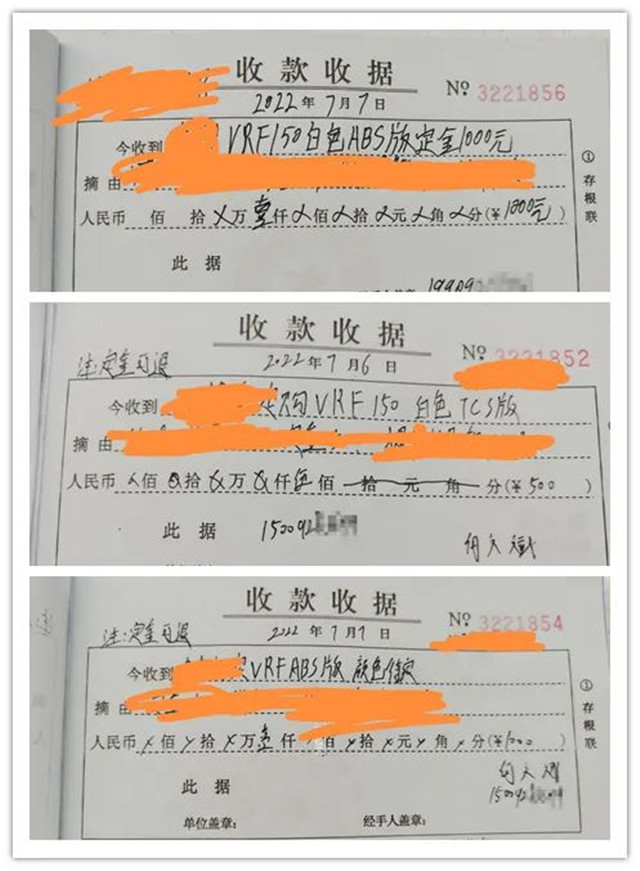 收款收据
2022年7月7日
№ 3221856
今收到 VRF150白色ABS版定金1000元
摘由
人民币 佰 拾 X万壹仟X佰X拾X元X角X分(¥1000元)
此据
①存根联
收款收据
注:定金可退
2022年7月6日
№ 3221852
今收到 VRF150 白色 TCS版
摘由
人民币 X佰 X拾 X万 X仟伍佰 拾 元 角 分(¥500)
此据 15009
收款收据
注:定金可退
2022年7月7日
№ 3221854
今收到 VRFABS版 颜色待定
摘由
人民币 X佰X拾X万壹仟 佰X拾X元X角X分(¥1000)
此据
单位盖章: 经手人盖章:
①存根联